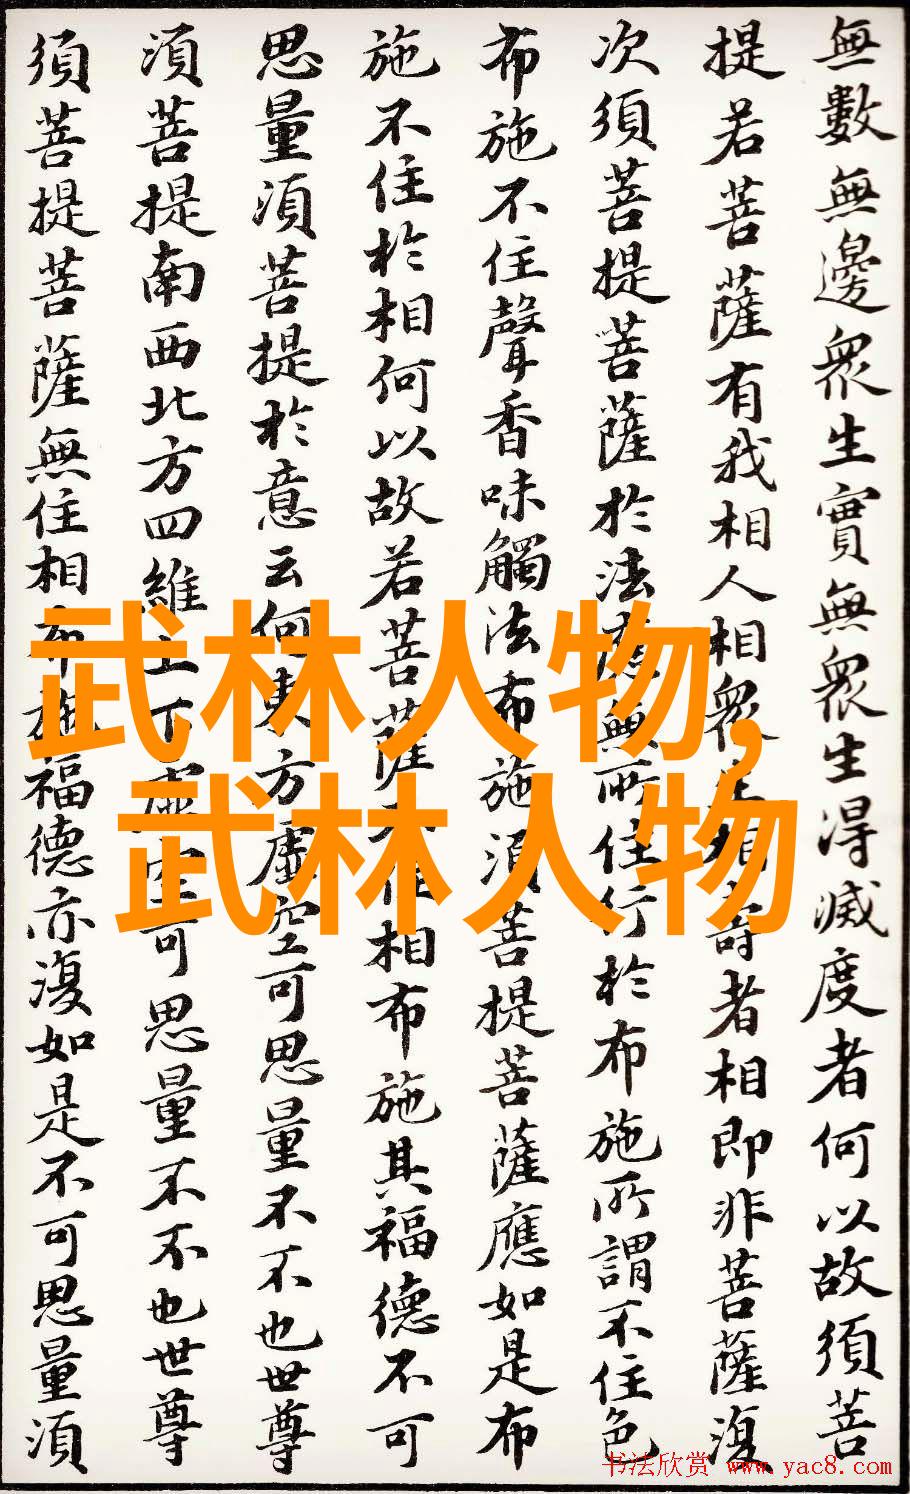 無數無邊眾生實無眾生得滅度者何以故須菩
提若菩薩有我相人相眾生相壽者相即非菩薩復
次須菩提菩薩於法應無所住行於布施所謂不住色
布施不住聲香味觸法布施須菩提菩薩應如是布
施不住於相何以故若菩薩不住相布施其福德不可
思量須菩提於意云何東方虛空可思量不不也世尊
須菩提南西北方四維上下虛空可思量不不也世尊
須菩提菩薩無住相布施福德亦復如是不可思量須
武林人物,
武林人物
书法欣赏 www.yac8.com